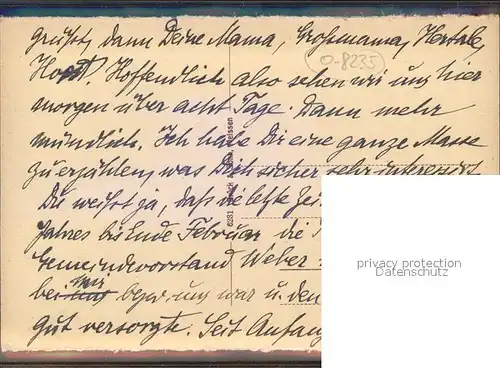 grüßt, dann Deine Mama, Großmama, Hertale,
Horst. Hoffendlich also sehen wir uns hier
morgen über acht Tage. Dann mehr
mündlich. Ich habe Dir eine ganze Masse
zu erzählen, was Dich sicher sehr interessirt.
Du weißt ja, daß die letzte Zei
Jahres bis Ende Februar die
Gemeindevorstand Weber
bei uns mir bezw. uns war u. den
gut versorgte. Seit Anfang
0-8235
6281
Meissen
privacy protection
Datenschutz